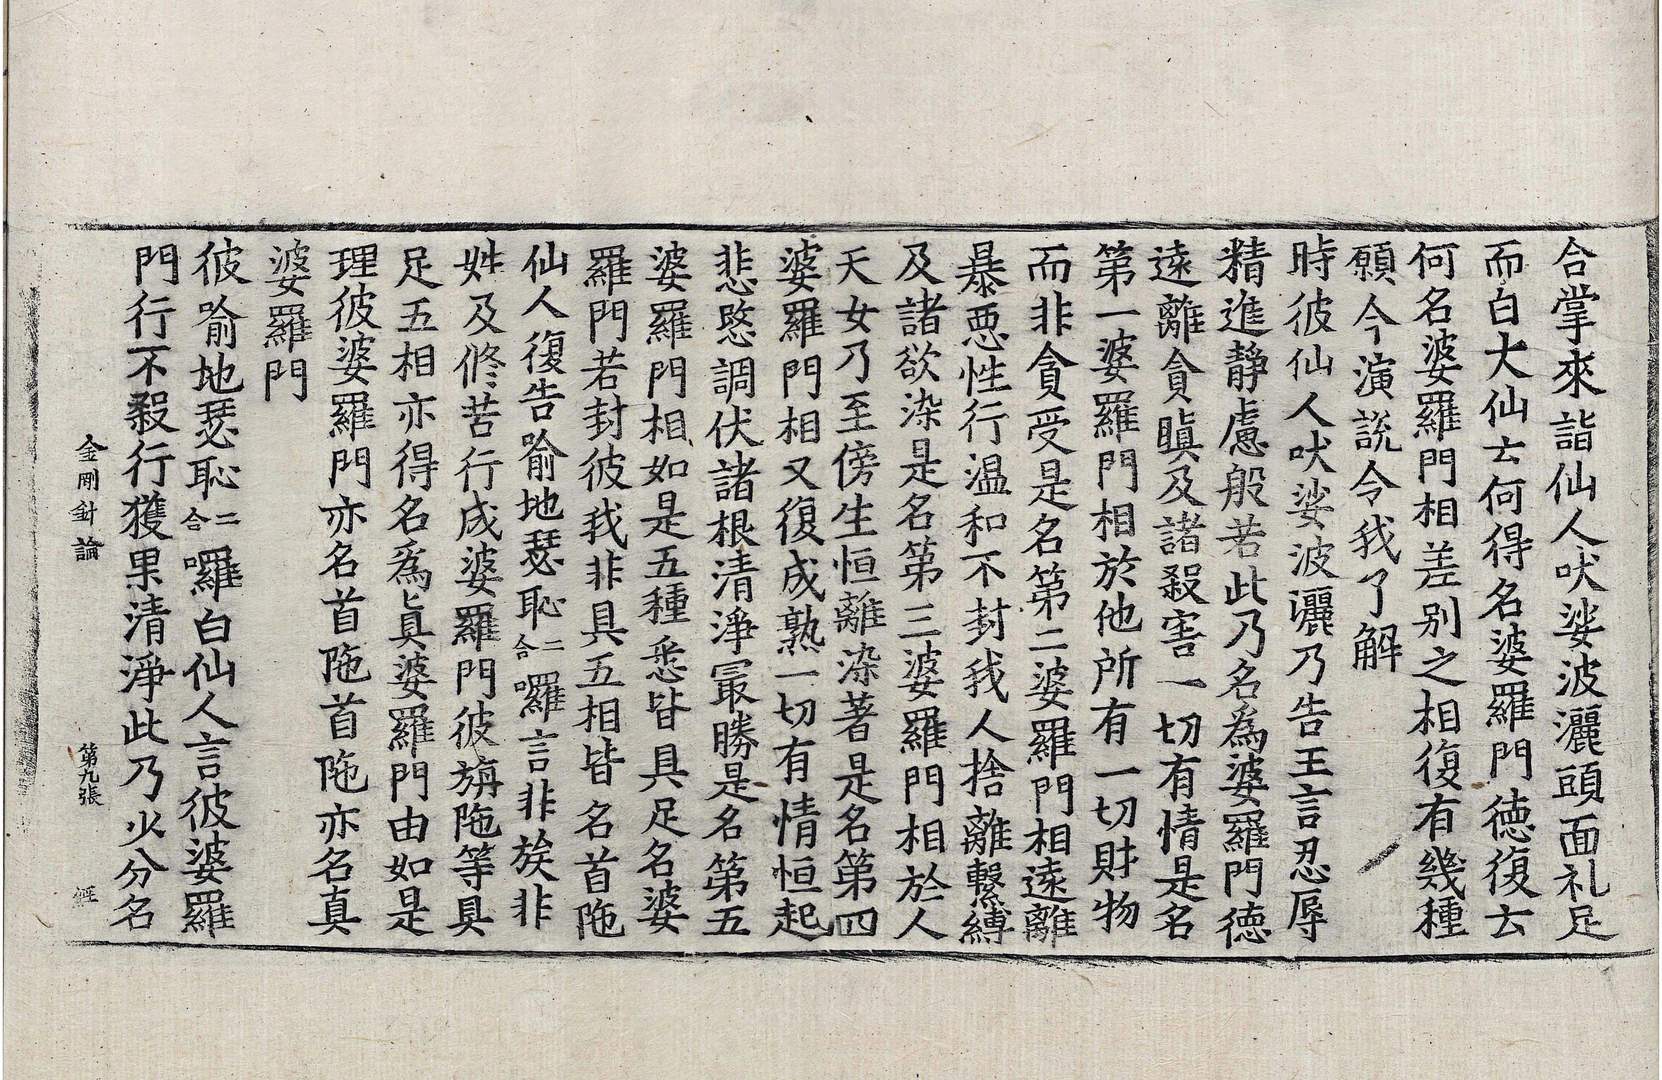 合掌來詣仙人吠娑波灑頭面礼足
而白大仙云何得名婆羅門德復云
何名婆羅門相差别之相復有幾種
願今演說令我了解
時彼仙人吠娑波灑乃告王言忍辱
精進靜慮般若此乃名為婆羅門德
遠離貪瞋及諸殺害一切有情是名
第一婆羅門相於他所有一切財物
而非貪受是名第二婆羅門相遠離
暴惡性行温和不封我人捨離繫縛
及諸欲染是名第三婆羅門相於人
天女乃至傍生恒離染著是名第四
婆羅門相又復成熟一切有情恒起
悲愍調伏諸根清淨最勝是名第五
婆羅門相如是五種悉皆具足名婆
羅門若封彼我非具五相皆名首陁
仙人復告喻地瑟恥二合囉言非族非
姓及修苦行成婆羅門彼旃陁等具
足五相亦得名爲真婆羅門由如是
理彼婆羅門亦名首陁首陁亦名真
婆羅門
彼喻地瑟恥二合囉白仙人言彼婆羅
門行不殺行獲果清淨此乃少分名
金剛針論 第九張